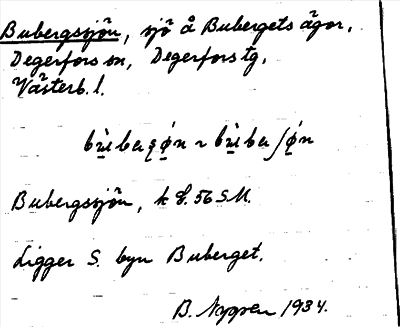 Bubergssjön, sjö å Bubergets ägor,
Degerfors sn, Degerfors tg,
Västerb. l.
Bubergssjön, k bl. 56 S.M.
Ligger S. byn Buberget.
B. Nygren 1934.